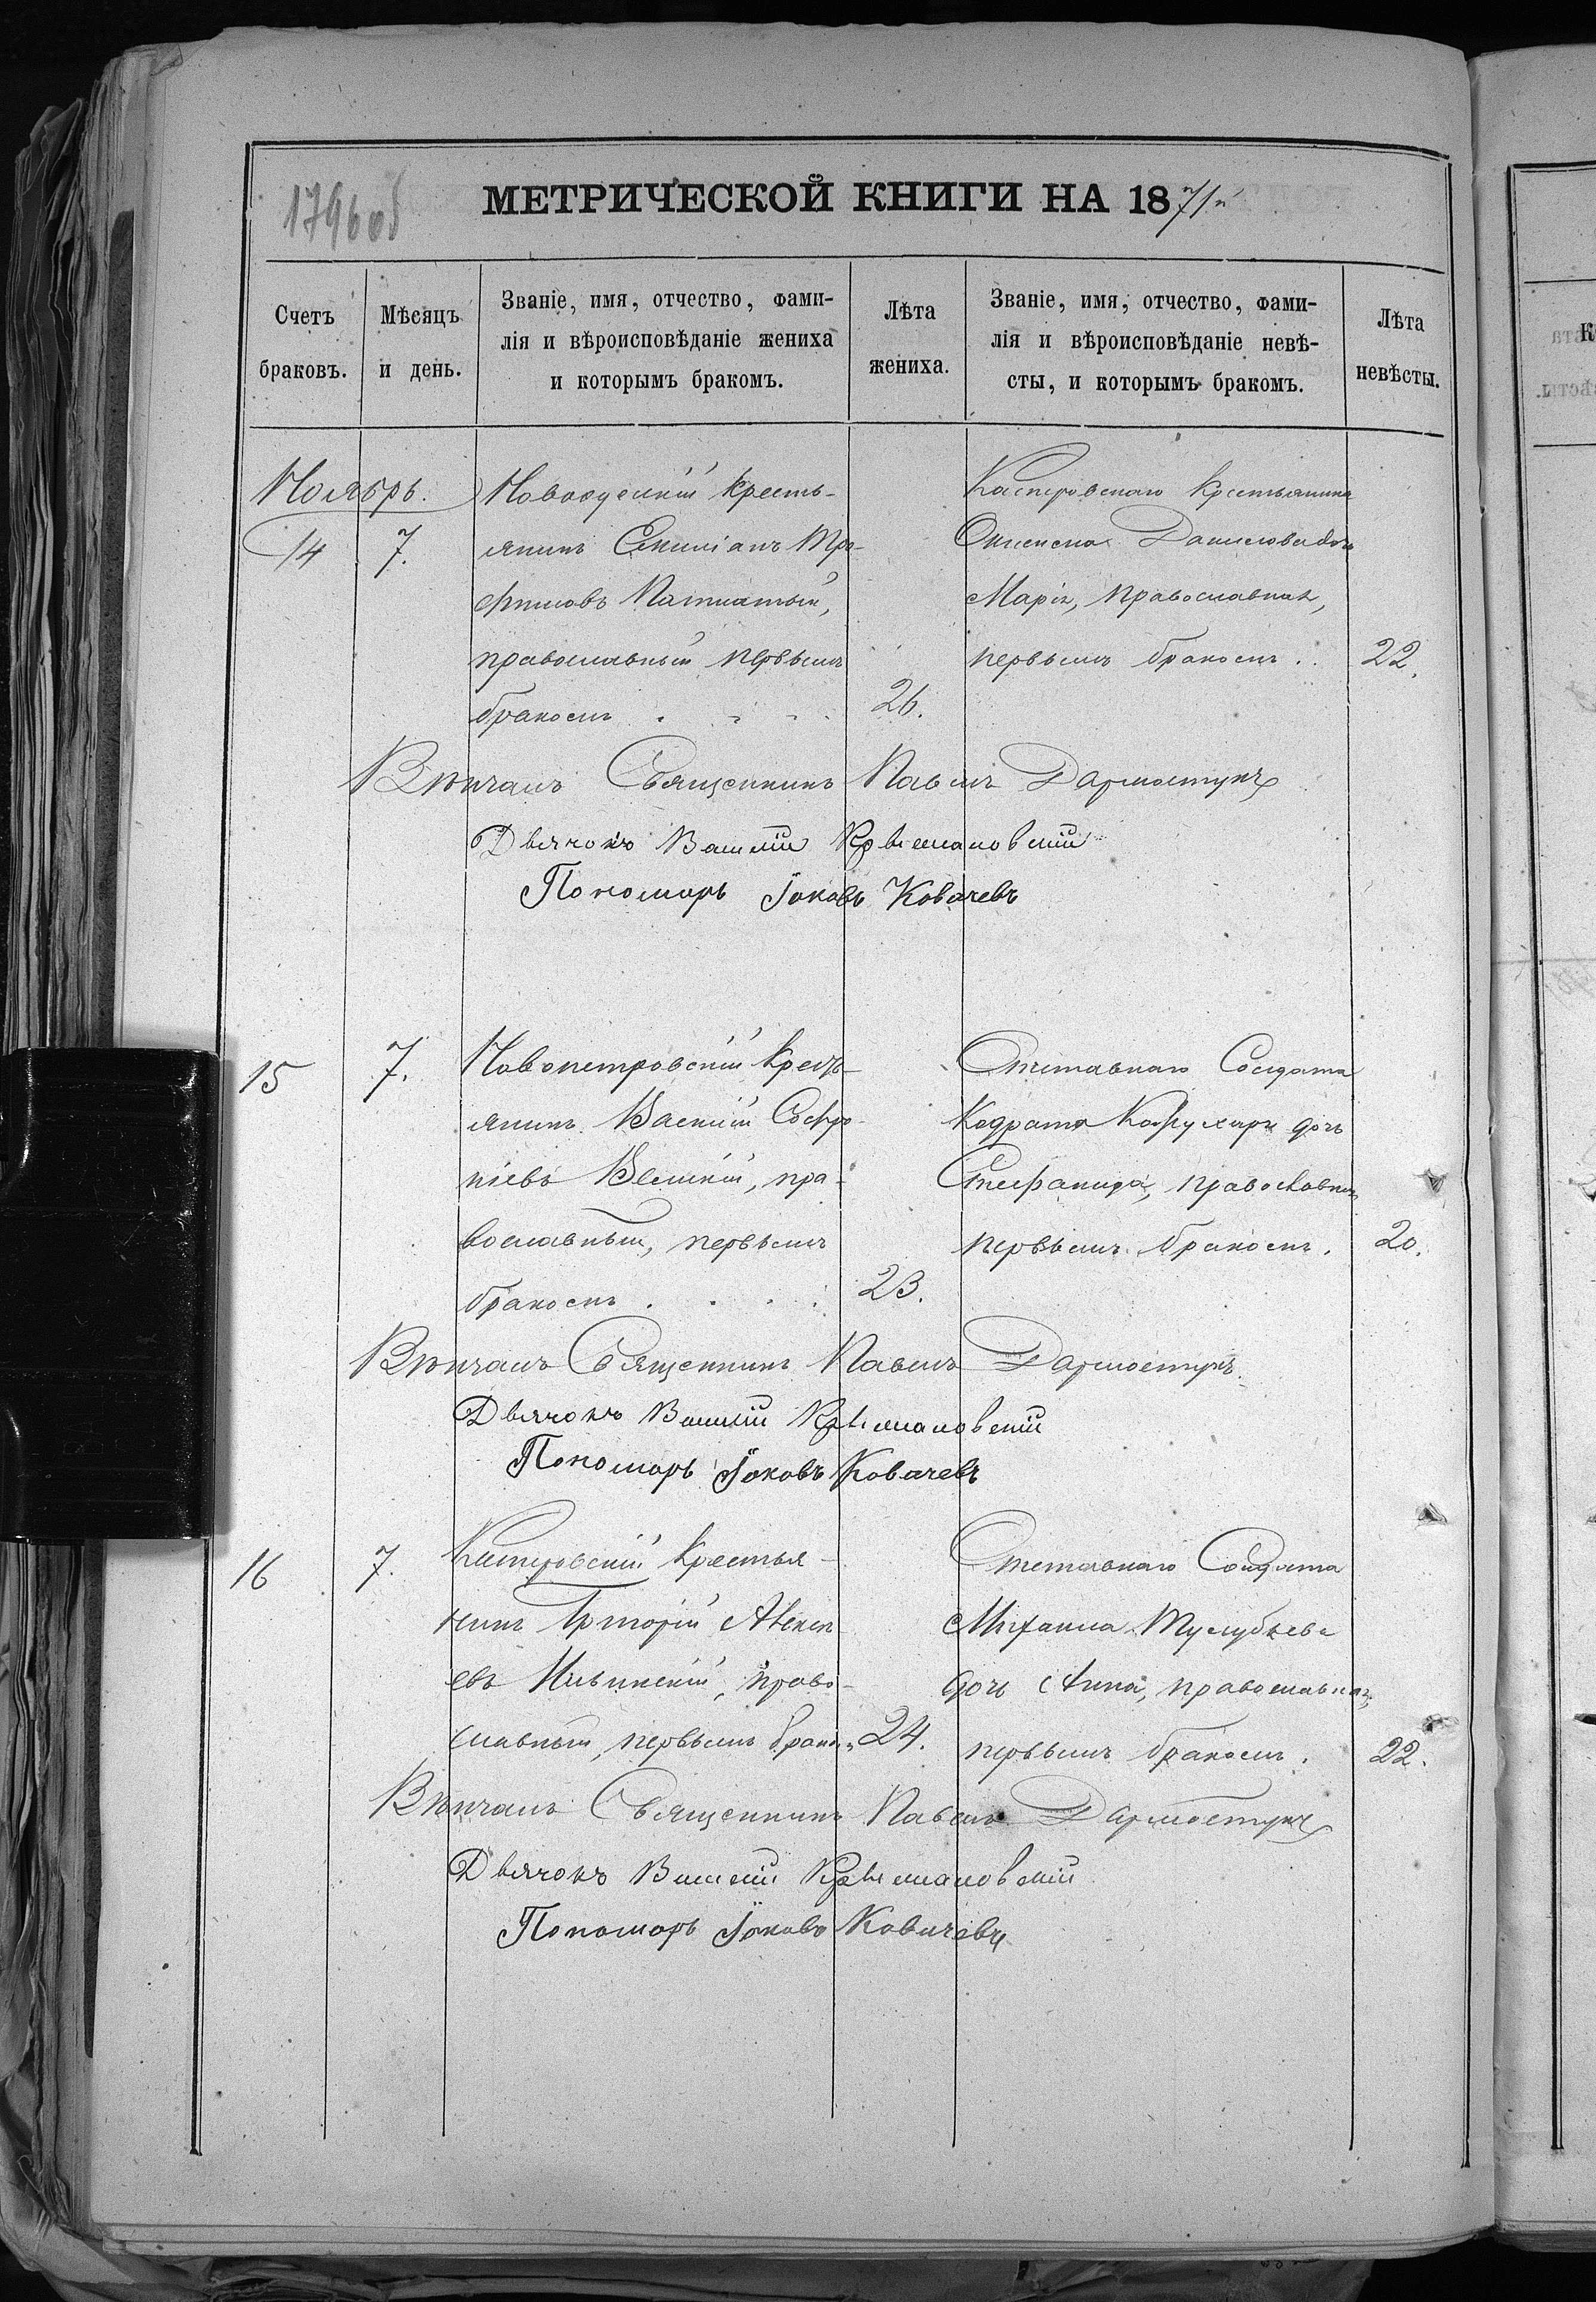 1796 об
МЕТРИЧЕСКОЙ КНИГИ НА 1871й
Счетъ браковъ.
Мѣсяцъ и день.
Званіе, имя, отчество, фами-
лія и вѣроисповѣданіе жениха
и которымъ бракомъ.
Лѣта жениха.
Званіе, имя, отчество, фами-
лія и вѣроисповѣданіе невѣ-
сты, и которымъ бракомъ.
Лѣта невѣсты.
Ноябрь.
14
7.
Новоодескій кресть-
янинъ Емиліанъ Тро-
фимовъ
православный первымъ
бракомъ . . . .
26.
Касперовскаго крестьянина
Данилова дочь
Марія, православная,
первымъ бракомъ . .
22.
Вѣнчалъ Священникъ Павелъ
Дьячокъ Василій
Пономарь Іаковъ Ковачевъ
15
7.
Новопетровскій Крест-
янинъ Василій Софро-
ніевъ Великій, пра-
вославный, первымъ
бракомъ . . . .
23.
Отставнаго Солдата
Кодрата дочь
Стефанида, православная
первымъ бракомъ.
20.
Вѣнчалъ Священникъ Павелъ
Дьячокъ Василій
Пономарь Іаковъ Ковачевъ
16
7.
Касперовскій Крестья-
нинъ Григорій Алексѣ-
евъ Ильинскій, право-
славный, первымъ бракомъ
24.
Отставнаго Солдата
Михаила
дочь Анна, православная,
первымъ бракомъ.
22.
Вѣнчалъ Священникъ Павелъ
Дьячокъ Василій
Пономарь Іаковъ Ковачевъ